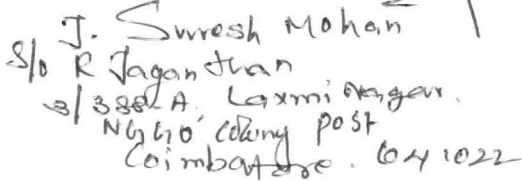 J. Suresh Mohan
S/o R Jagan than
3/388-A. Laxmi Nagar.
NGGO colony post
Coimbatore. 641022